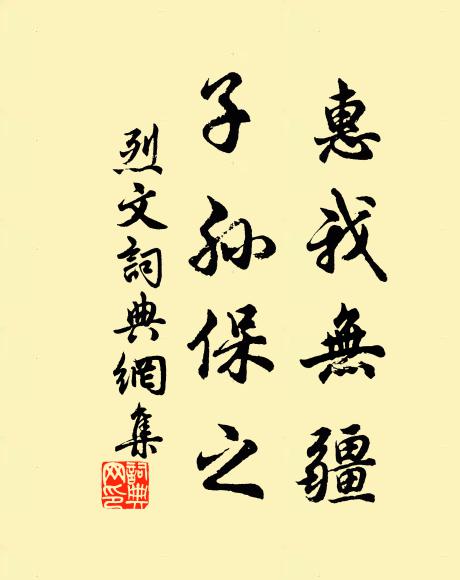 惠我無疆
子孫保之
烈文詞典網集
詞典網印